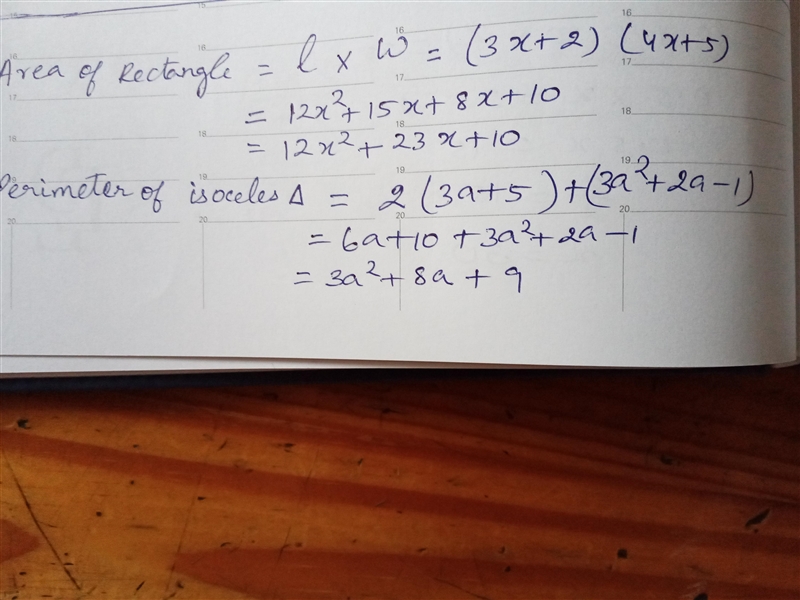 Area of Rectangle = l x W = (3x+2) (4x+5)
= 12x²+15x+8x+10
= 12x²+23x+10
Perimeter of isoceles Δ = 2(3a+5)+(3a²+2a-1)
= 6a+10+3a²+2a-1
= 3a²+8a+9